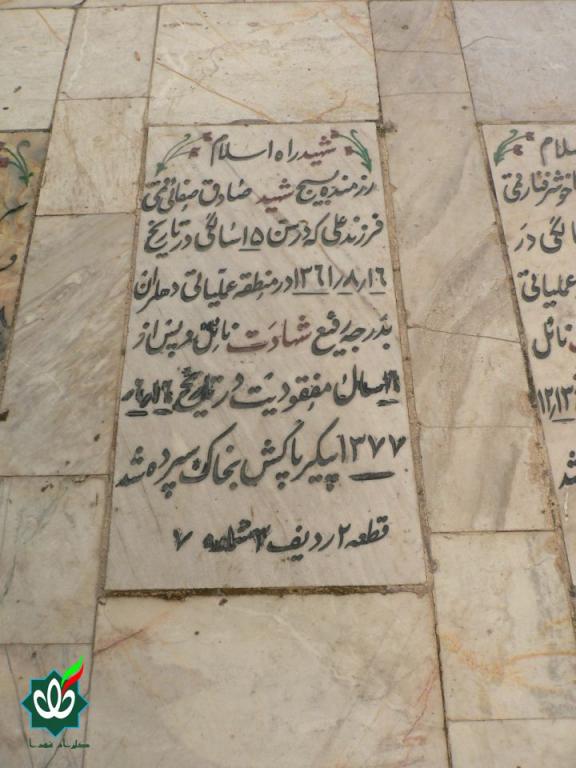 شهید راه اسلام
رزمنده بسیج شهید صادق صفائی قمی
فرزند علی که در سن ۱۵ سالگی در تاریخ
۱۳۶۱/۸/۱۶ در منطقه عملیاتی دهلران
بدرجه رفیع شهادت نائل و پس از
۱۶ سال مفقودیت در تاریخ
۱۳۷۷ پیکر پاکش بخاک سپرده شد
قطعه ۲ ردیف ۲ شماره ۷
سلام
قمی
سالگی در
عملیاتی
نائل